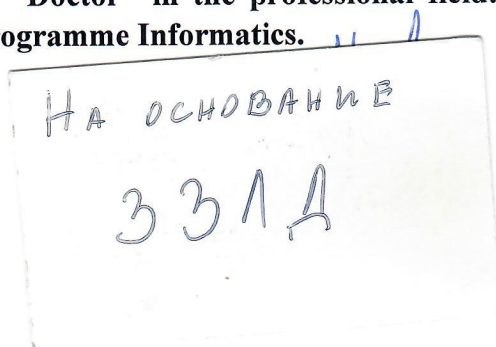 "Doctor" in the professional field:
ogramme Informatics.
НА ОСНОВАНИЕ
ЗЗЛД